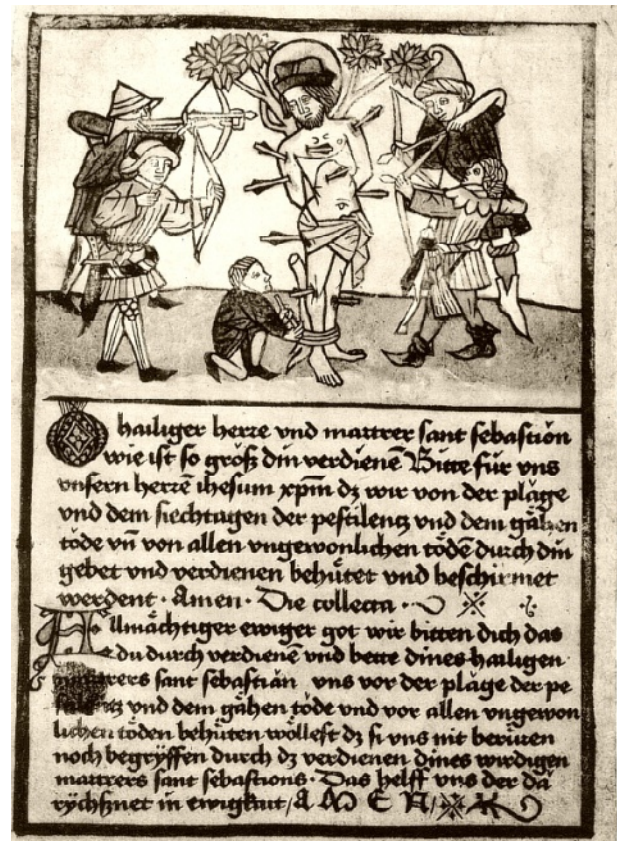 O hailiger herre vnd martrer sant sebastion
wie ist so groß din verdienē Bitte für vns
vnsern herrē ihesum xpm̄ dz wir von der pläge
vnd dem siechtagen der pestilentz vnd dem gähen
töde vn̄ von allen vngewonlichen tödē durch din
gebet vnd verdienen behütet vnd beschirmet
werdent · Amen · Die collecta ·
Allmächtiger ewiger got wir bitten dich das
du durch verdienē vnd bette dines hailigen
martrers sant sebastiän vns vor der pläge der pe
stilentz vnd dem gähen töde vnd vor allen vngewon
lichen töden behüten wöllest dz si vns nit berüren
noch begryffen durch dz verdienen dines wirdigen
martrers sant sebastions · Das helff vns der da
rychßnet in ewigkait / A M E N /